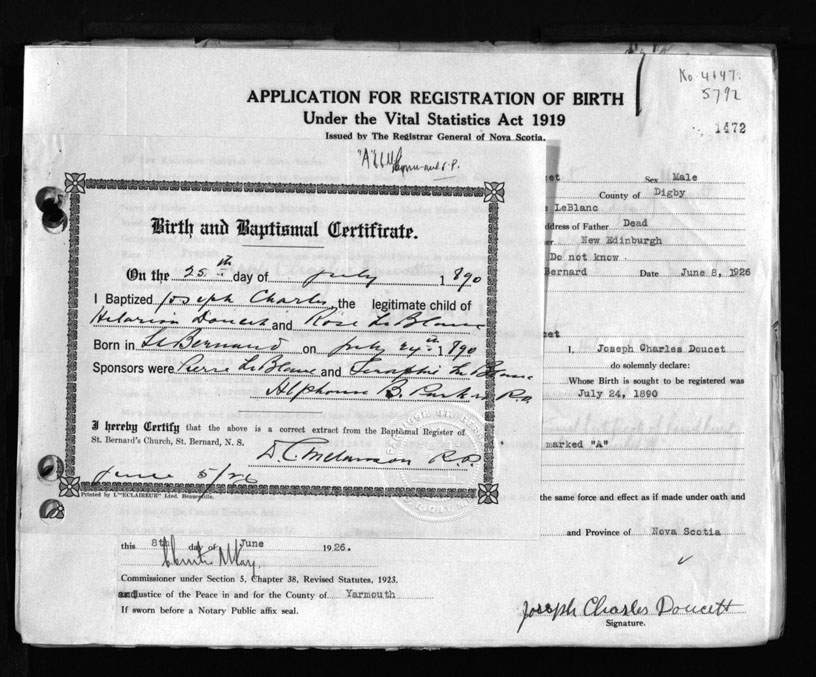 No 4147.
5792
APPLICATION FOR REGISTRATION OF BIRTH
Under the Vital Statistics Act 1919
1472
Issued by The Registrar General of Nova Scotia.
"A"
Birth and Baptismal Certificate.
On the 25th day of July 1890
I Baptized Joseph Charles, the legitimate child of
Hilarion Doucet and Rose LeBlanc
Born in St Bernard on July 24th 1890
Sponsors were Pierre LeBlanc and Seraphie LeBlanc
Alphonse B. Parker
I hereby Certify that the above is a correct extract from the Baptismal Register of
St. Bernard's Church, St. Bernard, N. S.
D. C. Melanson R.P.
June 5/26
Printed by L'"ECLAIREUR" Ltd.
et Sex Male
County of Digby
e LeBlanc
ddress of Father Dead
er New Edinburgh
Do not know.
Bernard Date June 8, 1926
cet
I, Joseph Charles Doucet
do solemnly declare:
Whose Birth is sought to be registered was
July 24, 1890
marked "A"
the same force and effect as if made under oath and
and Province of Nova Scotia
this 8th day of June 1926.
Commissioner under Section 5, Chapter 38, Revised Statutes, 1923.
and Justice of the Peace in and for the County of Yarmouth
If sworn before a Notary Public affix seal.
Joseph Charles Doucett
Signature.